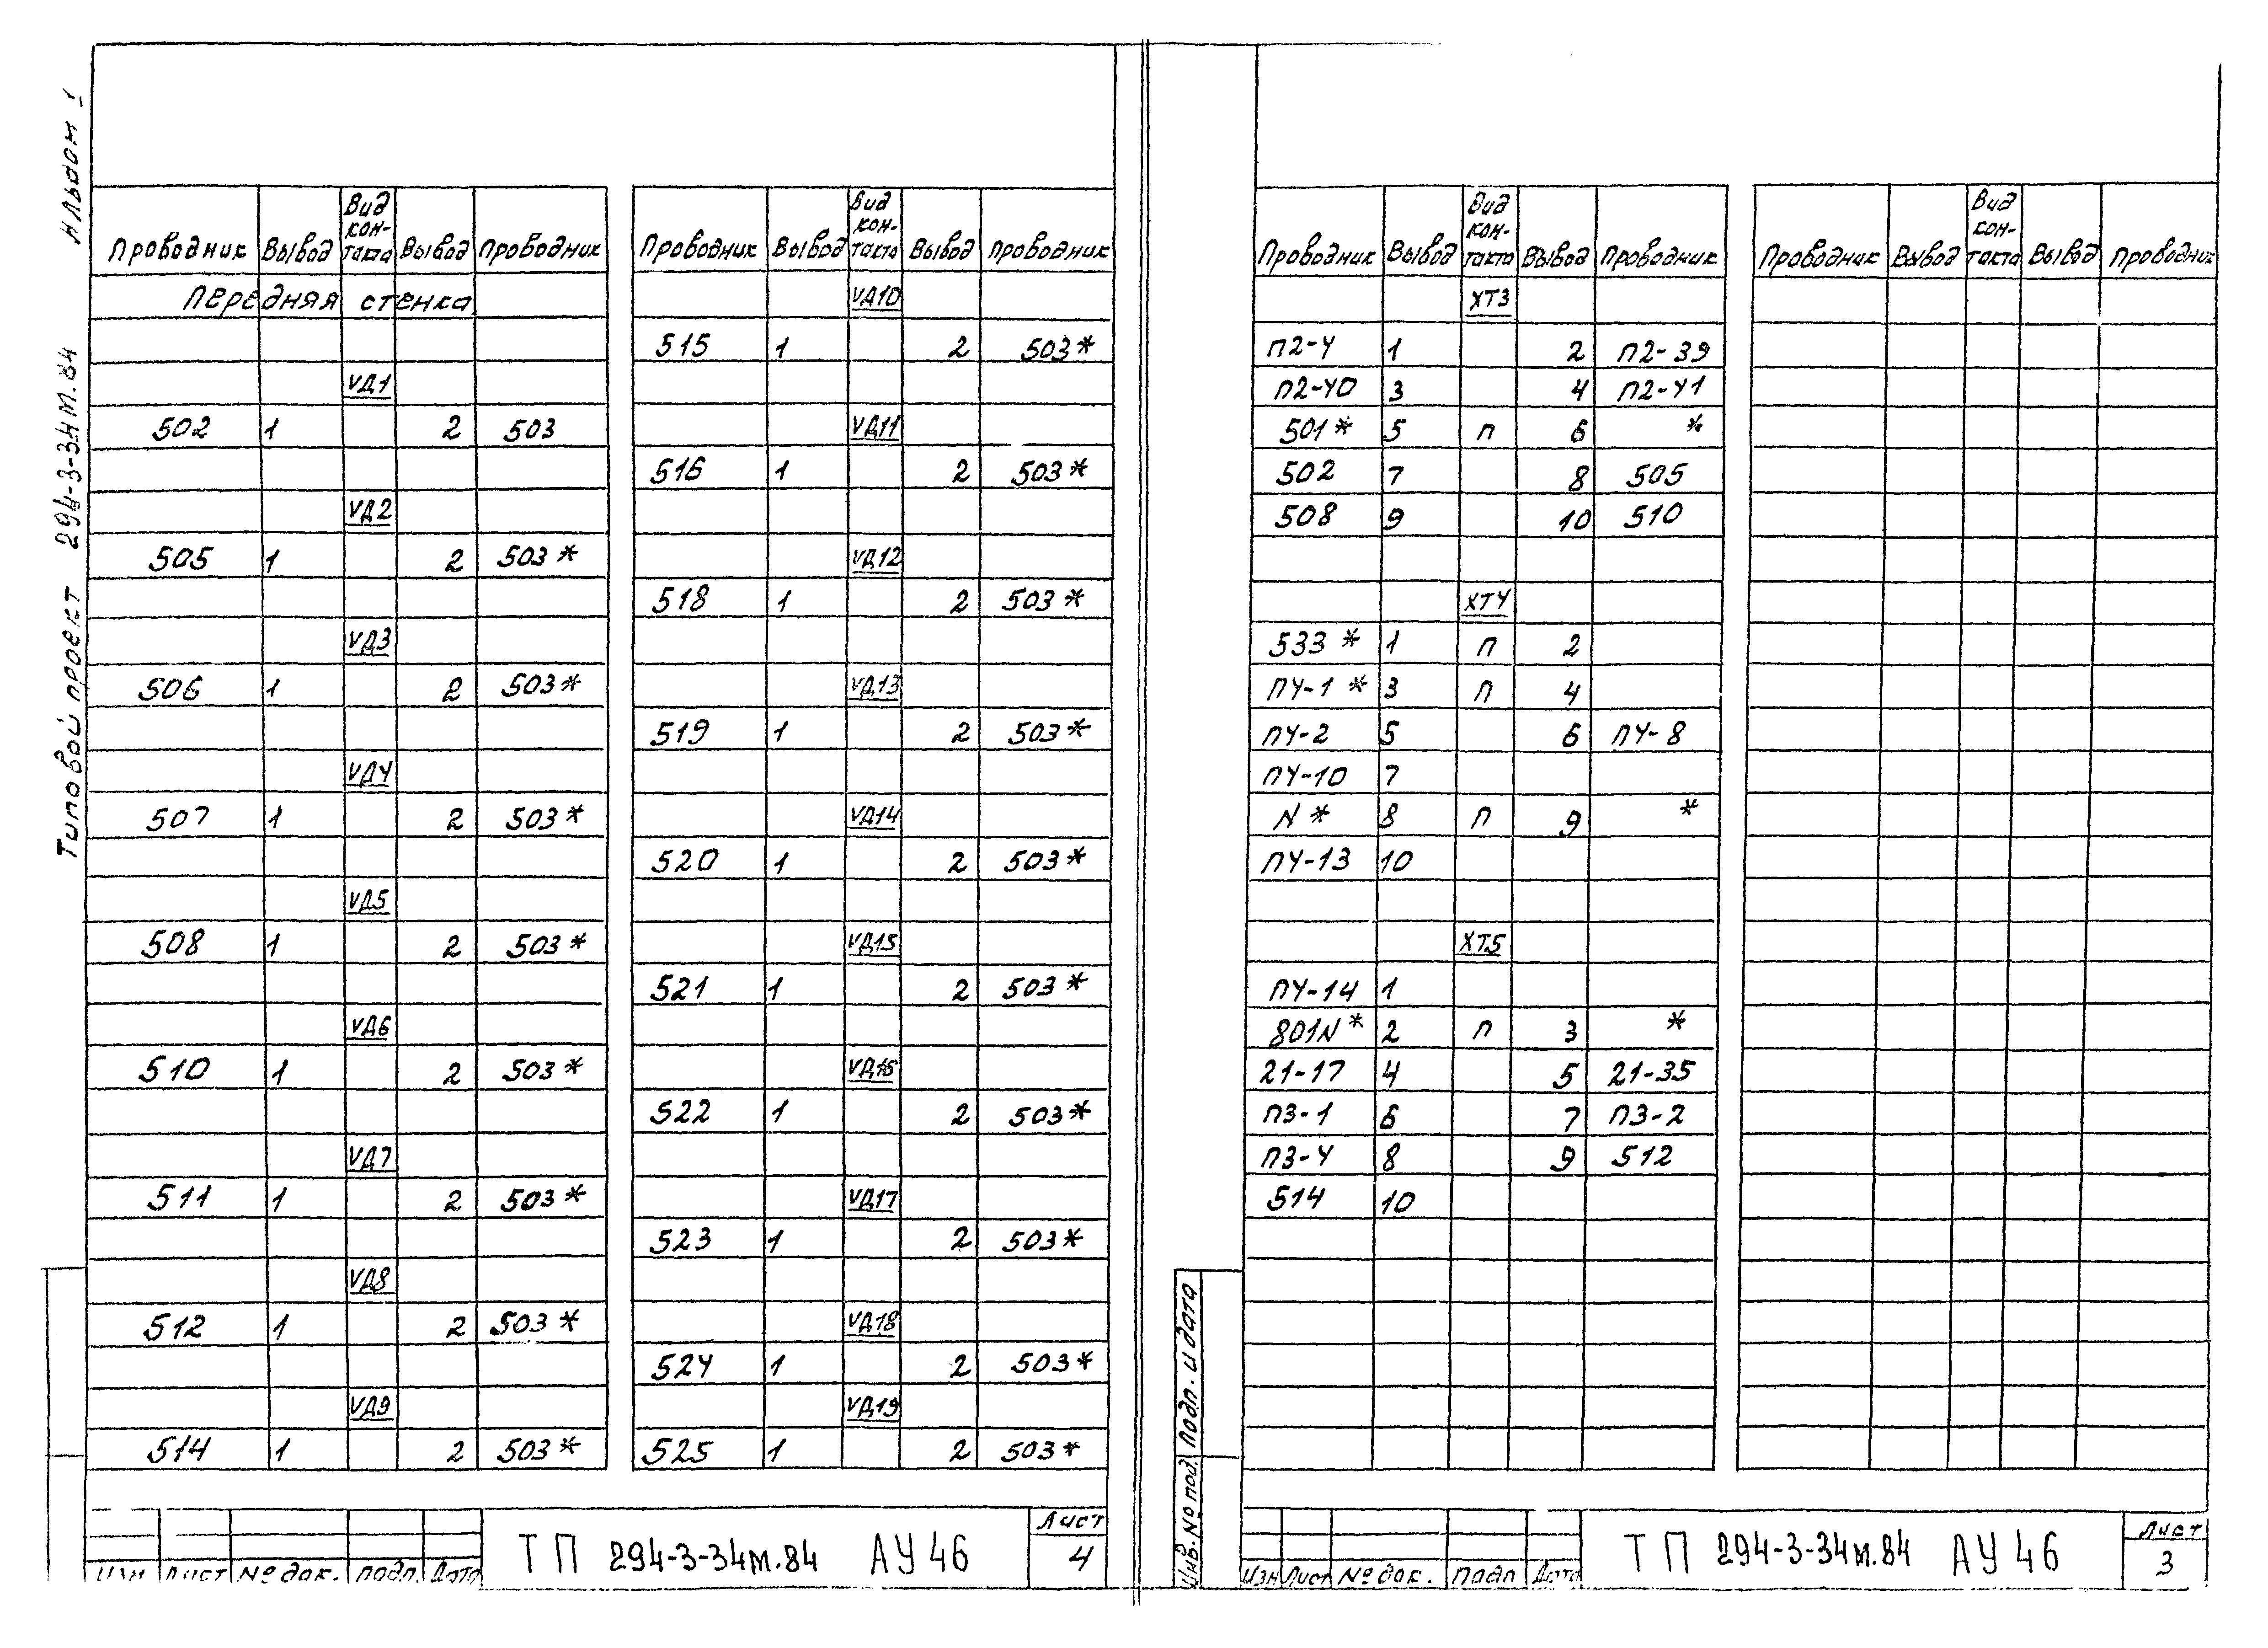 Альбом 1
Типовой проект 294-3-34м.84
Проводник Вывод Вид кон-такта Вывод Проводник
Передняя стенка
VД1
502 1 2 503
VД2
505 1 2 503*
VД3
506 1 2 503*
VД4
507 1 2 503*
VД5
508 1 2 503*
VД6
510 1 2 503*
VД7
511 1 2 503*
VД8
512 1 2 503*
VД9
514 1 2 503*
Проводник Вывод Вид кон-такта Вывод Проводник
VД10
515 1 2 503*
VД11
516 1 2 503*
VД12
518 1 2 503*
VД13
519 1 2 503*
VД14
520 1 2 503*
VД15
521 1 2 503*
VД16
522 1 2 503*
VД17
523 1 2 503*
VД18
524 1 2 503*
VД19
525 1 2 503*
Изм Лист № док. Подп. Дата
ТП 294-3-34м.84 АУ46
Лист
4
Проводник Вывод Вид кон-такта Вывод Проводник
ХТ3
П2-4 1 2 П2-39
П2-40 3 4 П2-41
501* 5 П 6 *
502 7 8 505
508 9 10 510
ХТ4
533* 1 П 2
П4-1* 3 П 4
П4-2 5 6 П4-8
П4-10 7
N* 8 П 9 *
П4-13 10
ХТ5
П4-14 1
801N* 2 П 3 *
21-17 4 5 21-35
П3-1 6 7 П3-2
П3-4 8 9 512
514 10
Проводник Вывод Вид кон-такта Вывод Проводник
Инв. № под. Подп. и дата
Изм Лист № док. Подп Дата
ТП 294-3-34м.84 АУ46
Лист
3